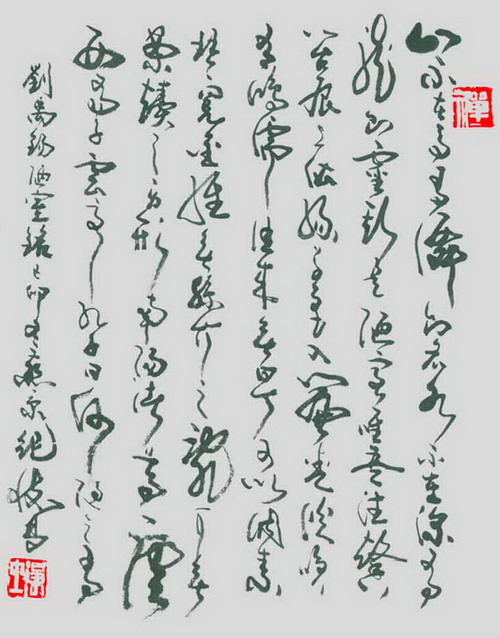 山不在高有僊則名水不在深有
龍則靈斯是陋室唯吾德馨
苔痕上階綠草色入簾青談笑
有鴻儒往來無白丁可以調素
琴閱金經無絲竹之亂耳無
案牘之勞形南陽諸葛廬
西蜀子雲亭孔子曰何陋之有
劉禹錫陋室銘己卯
禪